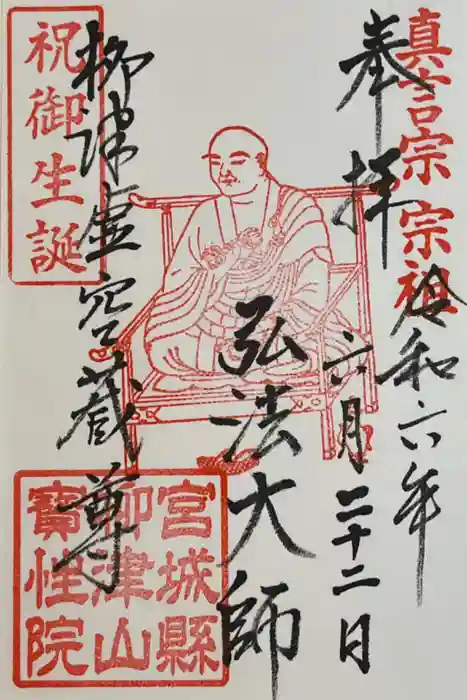 真言宗宗祖
奉拝
令和六年
六月二十二日
弘法大師
柳津虚空蔵尊
祝御生誕
宮城縣
柳津山
寶性院